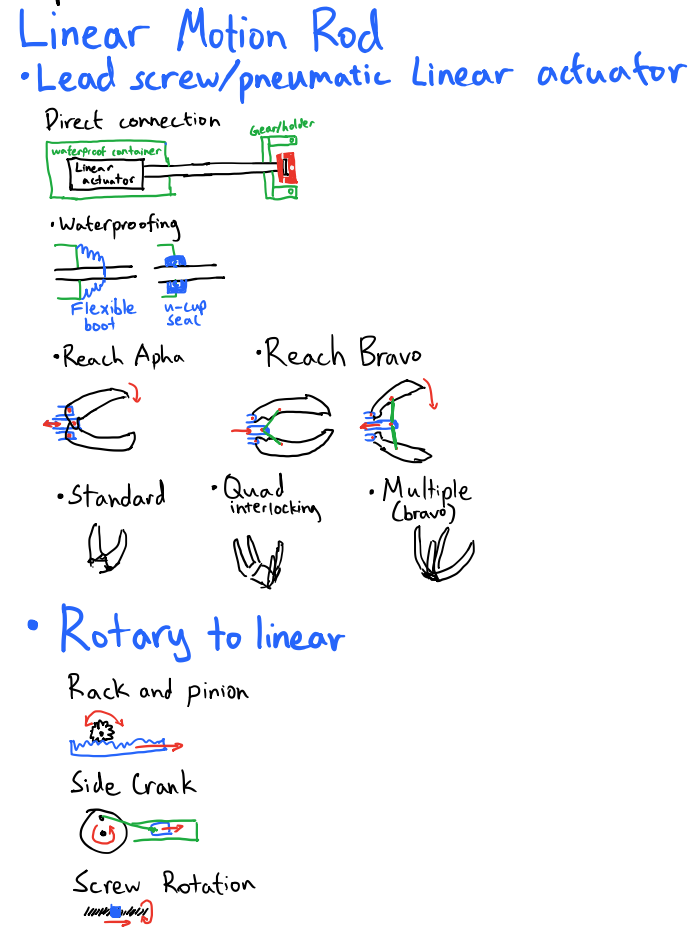 Linear Motion Rod
• Lead screw/pneumatic Linear actuator
Direct connection
Gear/holder
waterproof container
Linear
actuator
• Waterproofing
Flexible
boot
u-cup
seal
• Reach Apha
• Reach Bravo
• Standard
• Quad
interlocking
• Multiple
(bravo)
• Rotary to linear
Rack and pinion
Side Crank
Screw Rotation